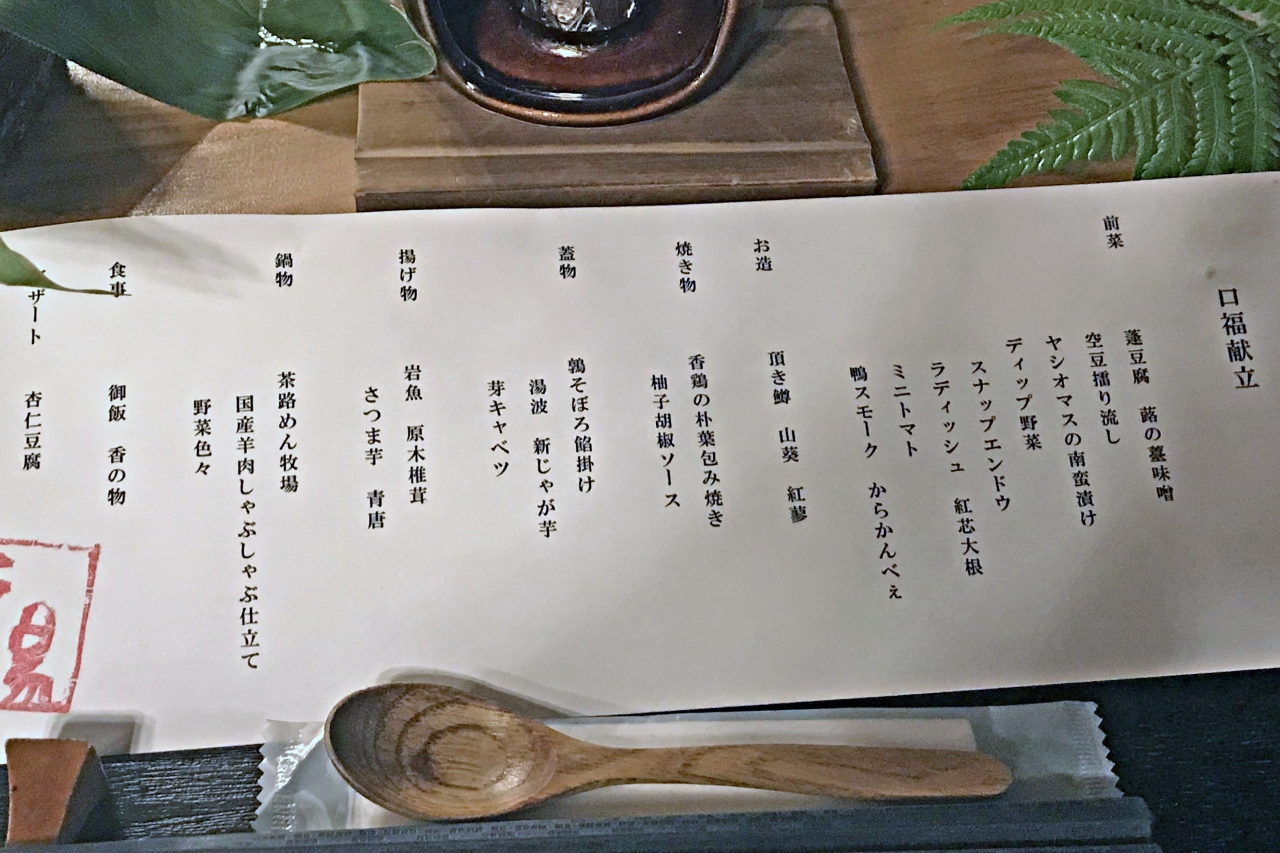 口福献立
前菜
蓬豆腐　蕗の薹味噌
空豆擂り流し
ヤシオマスの南蛮漬け
ディップ野菜
スナップエンドウ
ラディッシュ　紅芯大根
ミニトマト
鴨スモーク　からかんべぇ
お造
頂き鱒　山葵　紅蓼
焼き物
香鶏の朴葉包み焼き
柚子胡椒ソース
蓋物
鶉そぼろ餡掛け
湯波　新じゃが芋
芽キャベツ
揚げ物
岩魚　原木椎茸
さつま芋　青唐
鍋物
茶路めん牧場
国産羊肉しゃぶしゃぶ仕立て
野菜色々
食事
御飯　香の物
ザート
杏仁豆腐